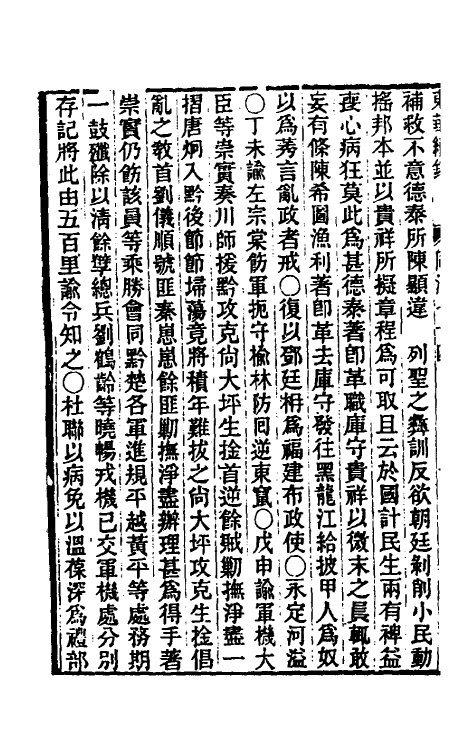 補救不意德泰所陳顯違　列聖之彝訓反欲朝廷剝削小民動
搖邦本並以貴祥所擬章程爲可取且云於國計民生兩有裨益
喪心病狂莫此爲甚德泰著卽革職庫守貴祥以微末之員輒敢
妄有條陳希圖漁利著卽革去庫守發往黑龍江給披甲人爲奴
以爲莠言亂政者戒○復以鄧廷枏爲福建布政使○永定河溢
○丁未諭左宗棠飭軍扼守榆林防回逆東竄○戊申諭軍機大
臣等崇實奏川師援黔攻克尙大坪生擒首逆餘賊勦撫淨盡一
摺唐炯入黔後節節埽蕩竟將積年難拔之尙大坪攻克生擒倡
亂之敎首劉儀順號匪秦崽崽餘匪勦撫淨盡辦理甚爲得手著
崇實仍飭該員等乘勝會同黔楚各軍進規平越黃平等處務期
一鼓殲除以淸餘孽總兵劉鶴齡等曉暢戎機已交軍機處分別
存記將此由五百里諭令知之○杜聯以病免以溫葆深爲禮部